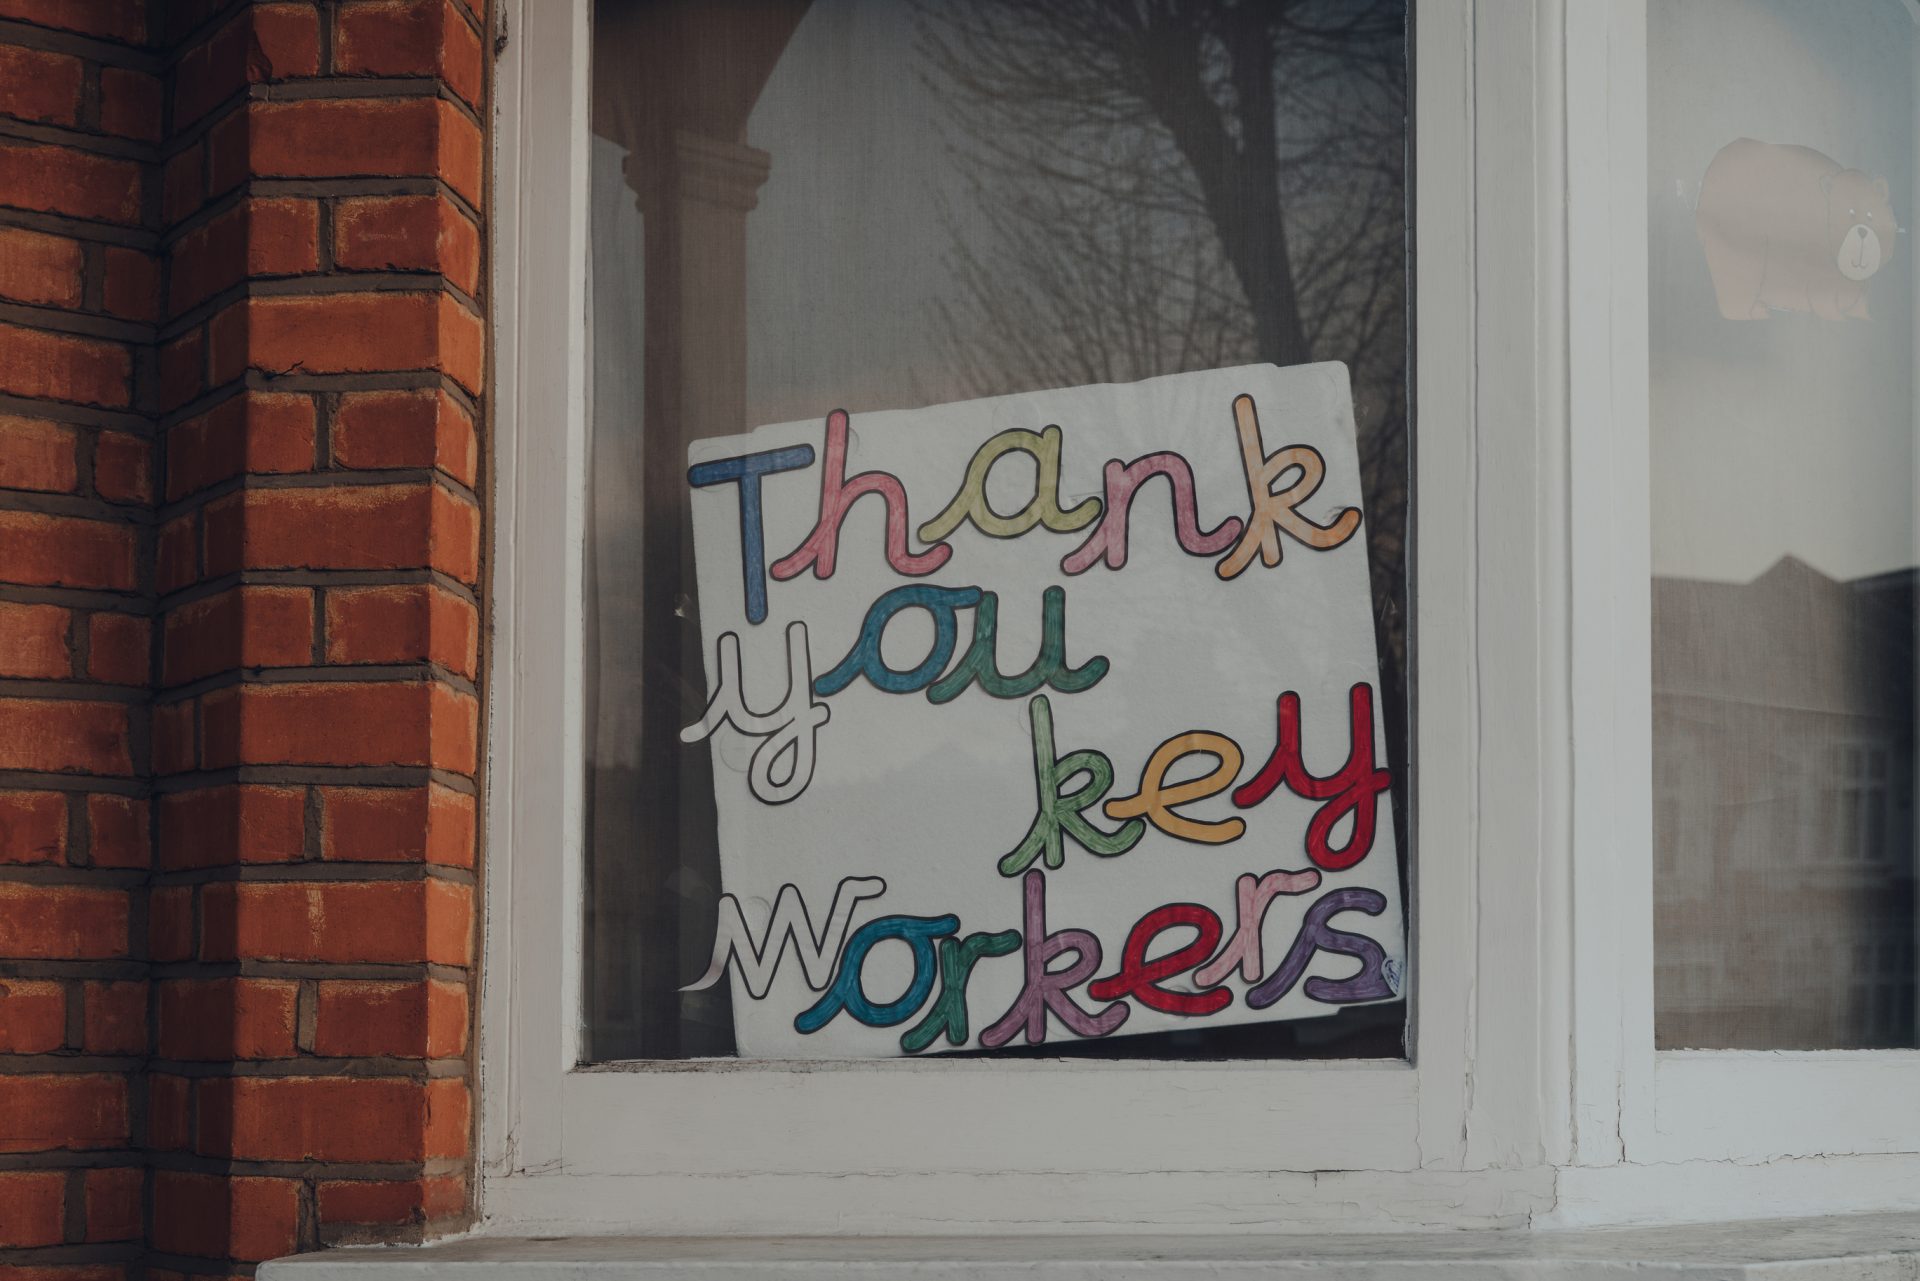 Thank
you
key
workers